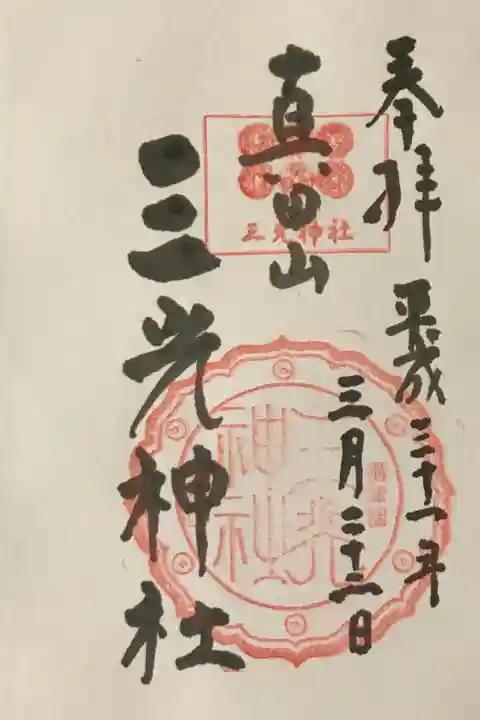 奉拝
平成三十一年
三月二十二日
真田山
三光神社
三光神社
三光神社